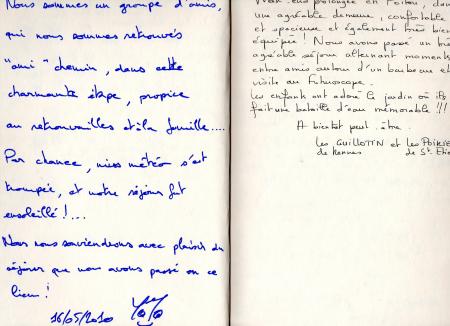 Nous sommes un groupe d'amis,
qui nous sommes retrouvés
"ami" chemin, dans cette
charmante étape, propice
au retrouvailles et à la famille....
Par chance, miss météo s'est
trompée, et notre séjour fut
ensoleillé !...
Nous nous souviendrons avec plaisir du
séjour que nous avons passé en ce
lieu !
16/05/2010
Week-end prolongé en Poitou, dans
une agréable demeure, confortable
et spacieuse et également très bien
équipée ! Nous avons passé un très
agréable séjour alternant moments
entre amis autour d'un barbecue et
visite au Futuroscope.
Les enfants ont adoré le jardin où ils
fait une bataille d'eau mémorable !!!
A bientôt peut-être
Les GUILLOTIN et les
de Rennes de St-